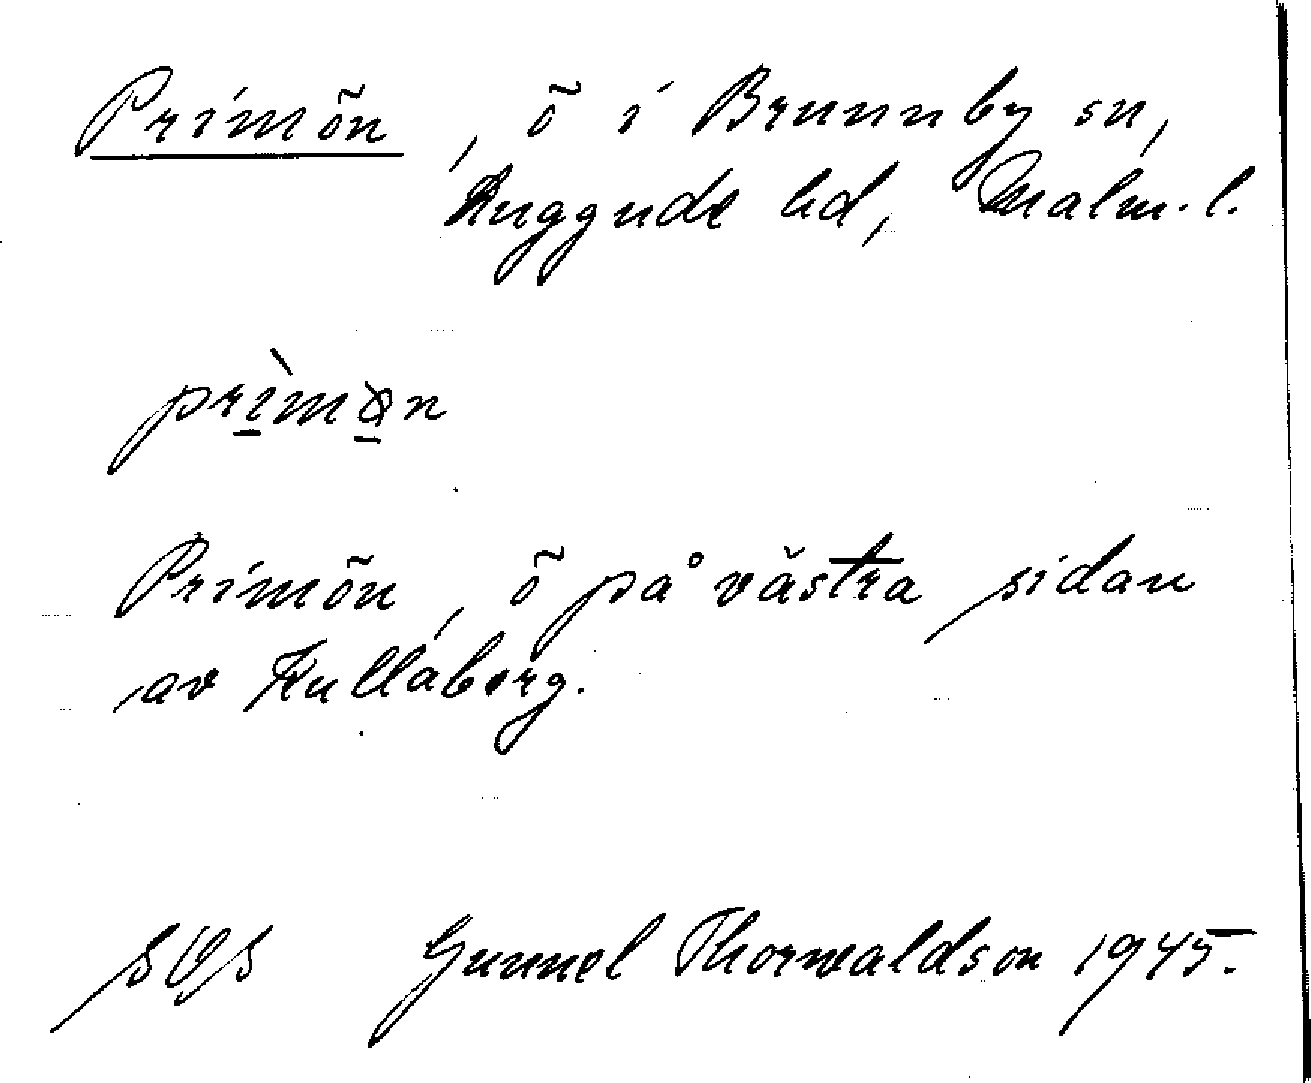 Primön, ö i Brunnby sn,
Luggude hd, Malm. l.
prìmøn
Primön, ö på västra sidan
av Kullaberg.
SOS Gunnel Thorwaldson 1945.